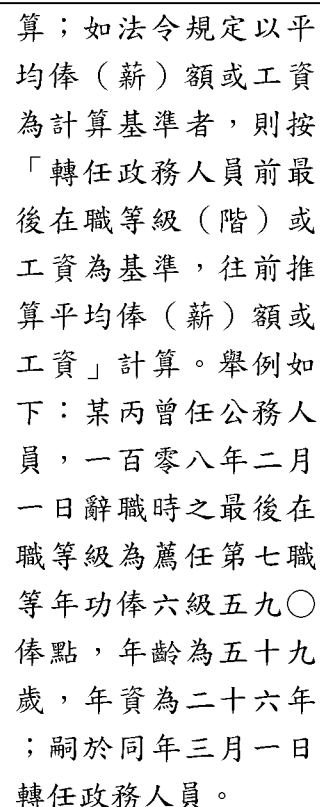 算；如法令規定以平
均俸（薪）額或工資
為計算基準者，則按
「轉任政務人員前最
後在職等級（階）或
工資為基準，往前推
算平均俸（薪）額或
工資」計算。舉例如
下：某丙曾任公務人
員，一百零八年二月
一日辭職時之最後在
職等級為薦任第七職
等年功俸六級五九○
俸點，年齡為五十九
歲，年資為二十六年
；嗣於同年三月一日
轉任政務人員。